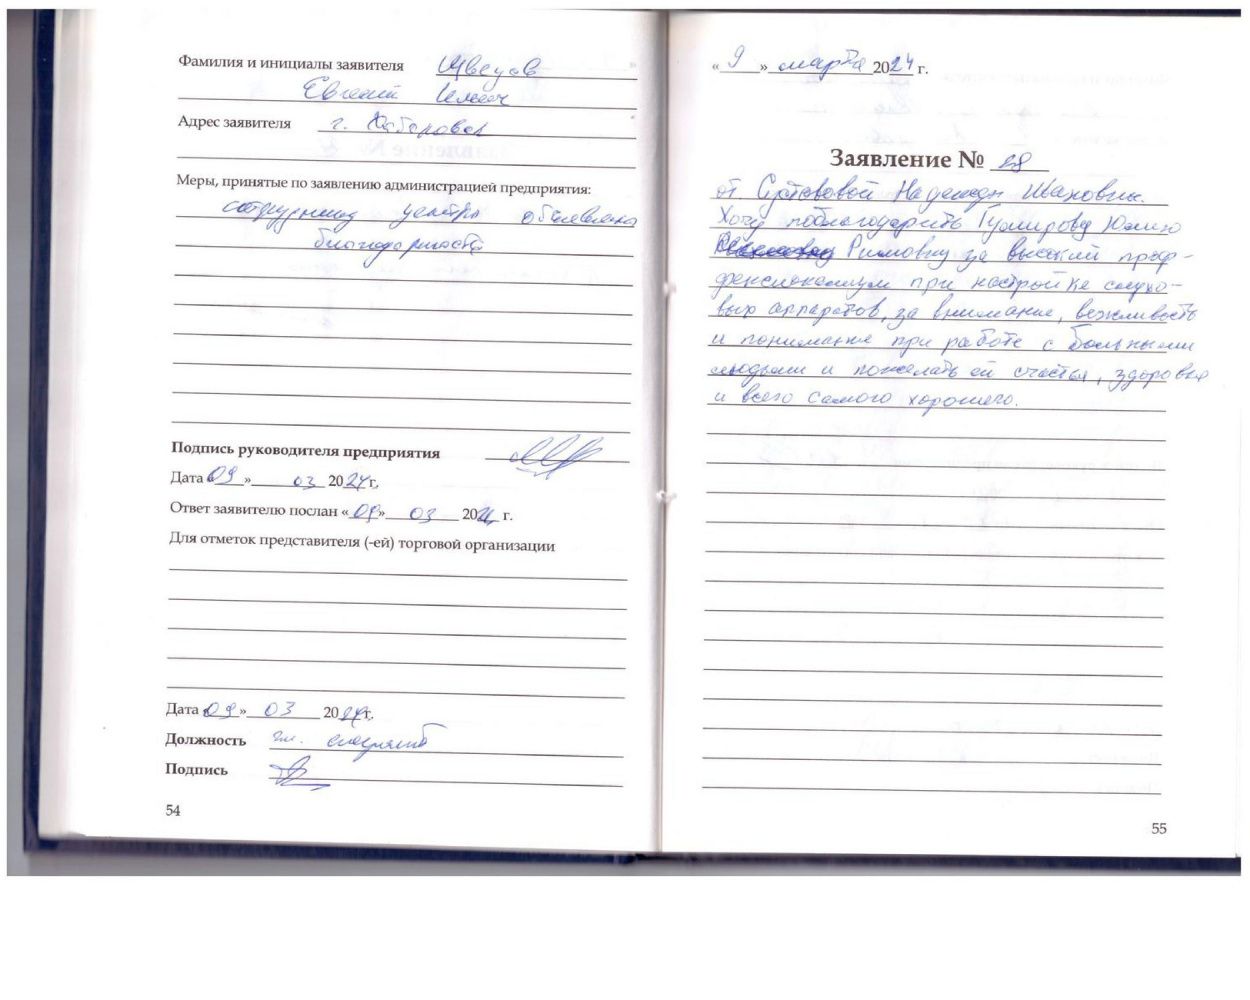 Фамилия и инициалы заявителя Швецов
Евгений
Адрес заявителя г. Хабаровск
Меры, принятые по заявлению администрацией предприятия:
сотруднику центра объявлена
благодарность
Подпись руководителя предприятия
Дата «09» 03 2024г.
Ответ заявителю послан «09» 03 2024 г.
Для отметок представителя (-ей) торговой организации
Дата «09» 03 2024г.
Должность гл. специалист
Подпись
54
«9» марта 2024 г.
Заявление № 28
от Надежды Ивановны.
Хочу поблагодарить Юлию
Римовну за высокий проф-
фессионализм при настройке слухо-
вых аппаратов, за внимание, вежливость
и понимание при работе с больными
людьми и пожелать ей счастья, здоровья
и всего самого хорошего.
55